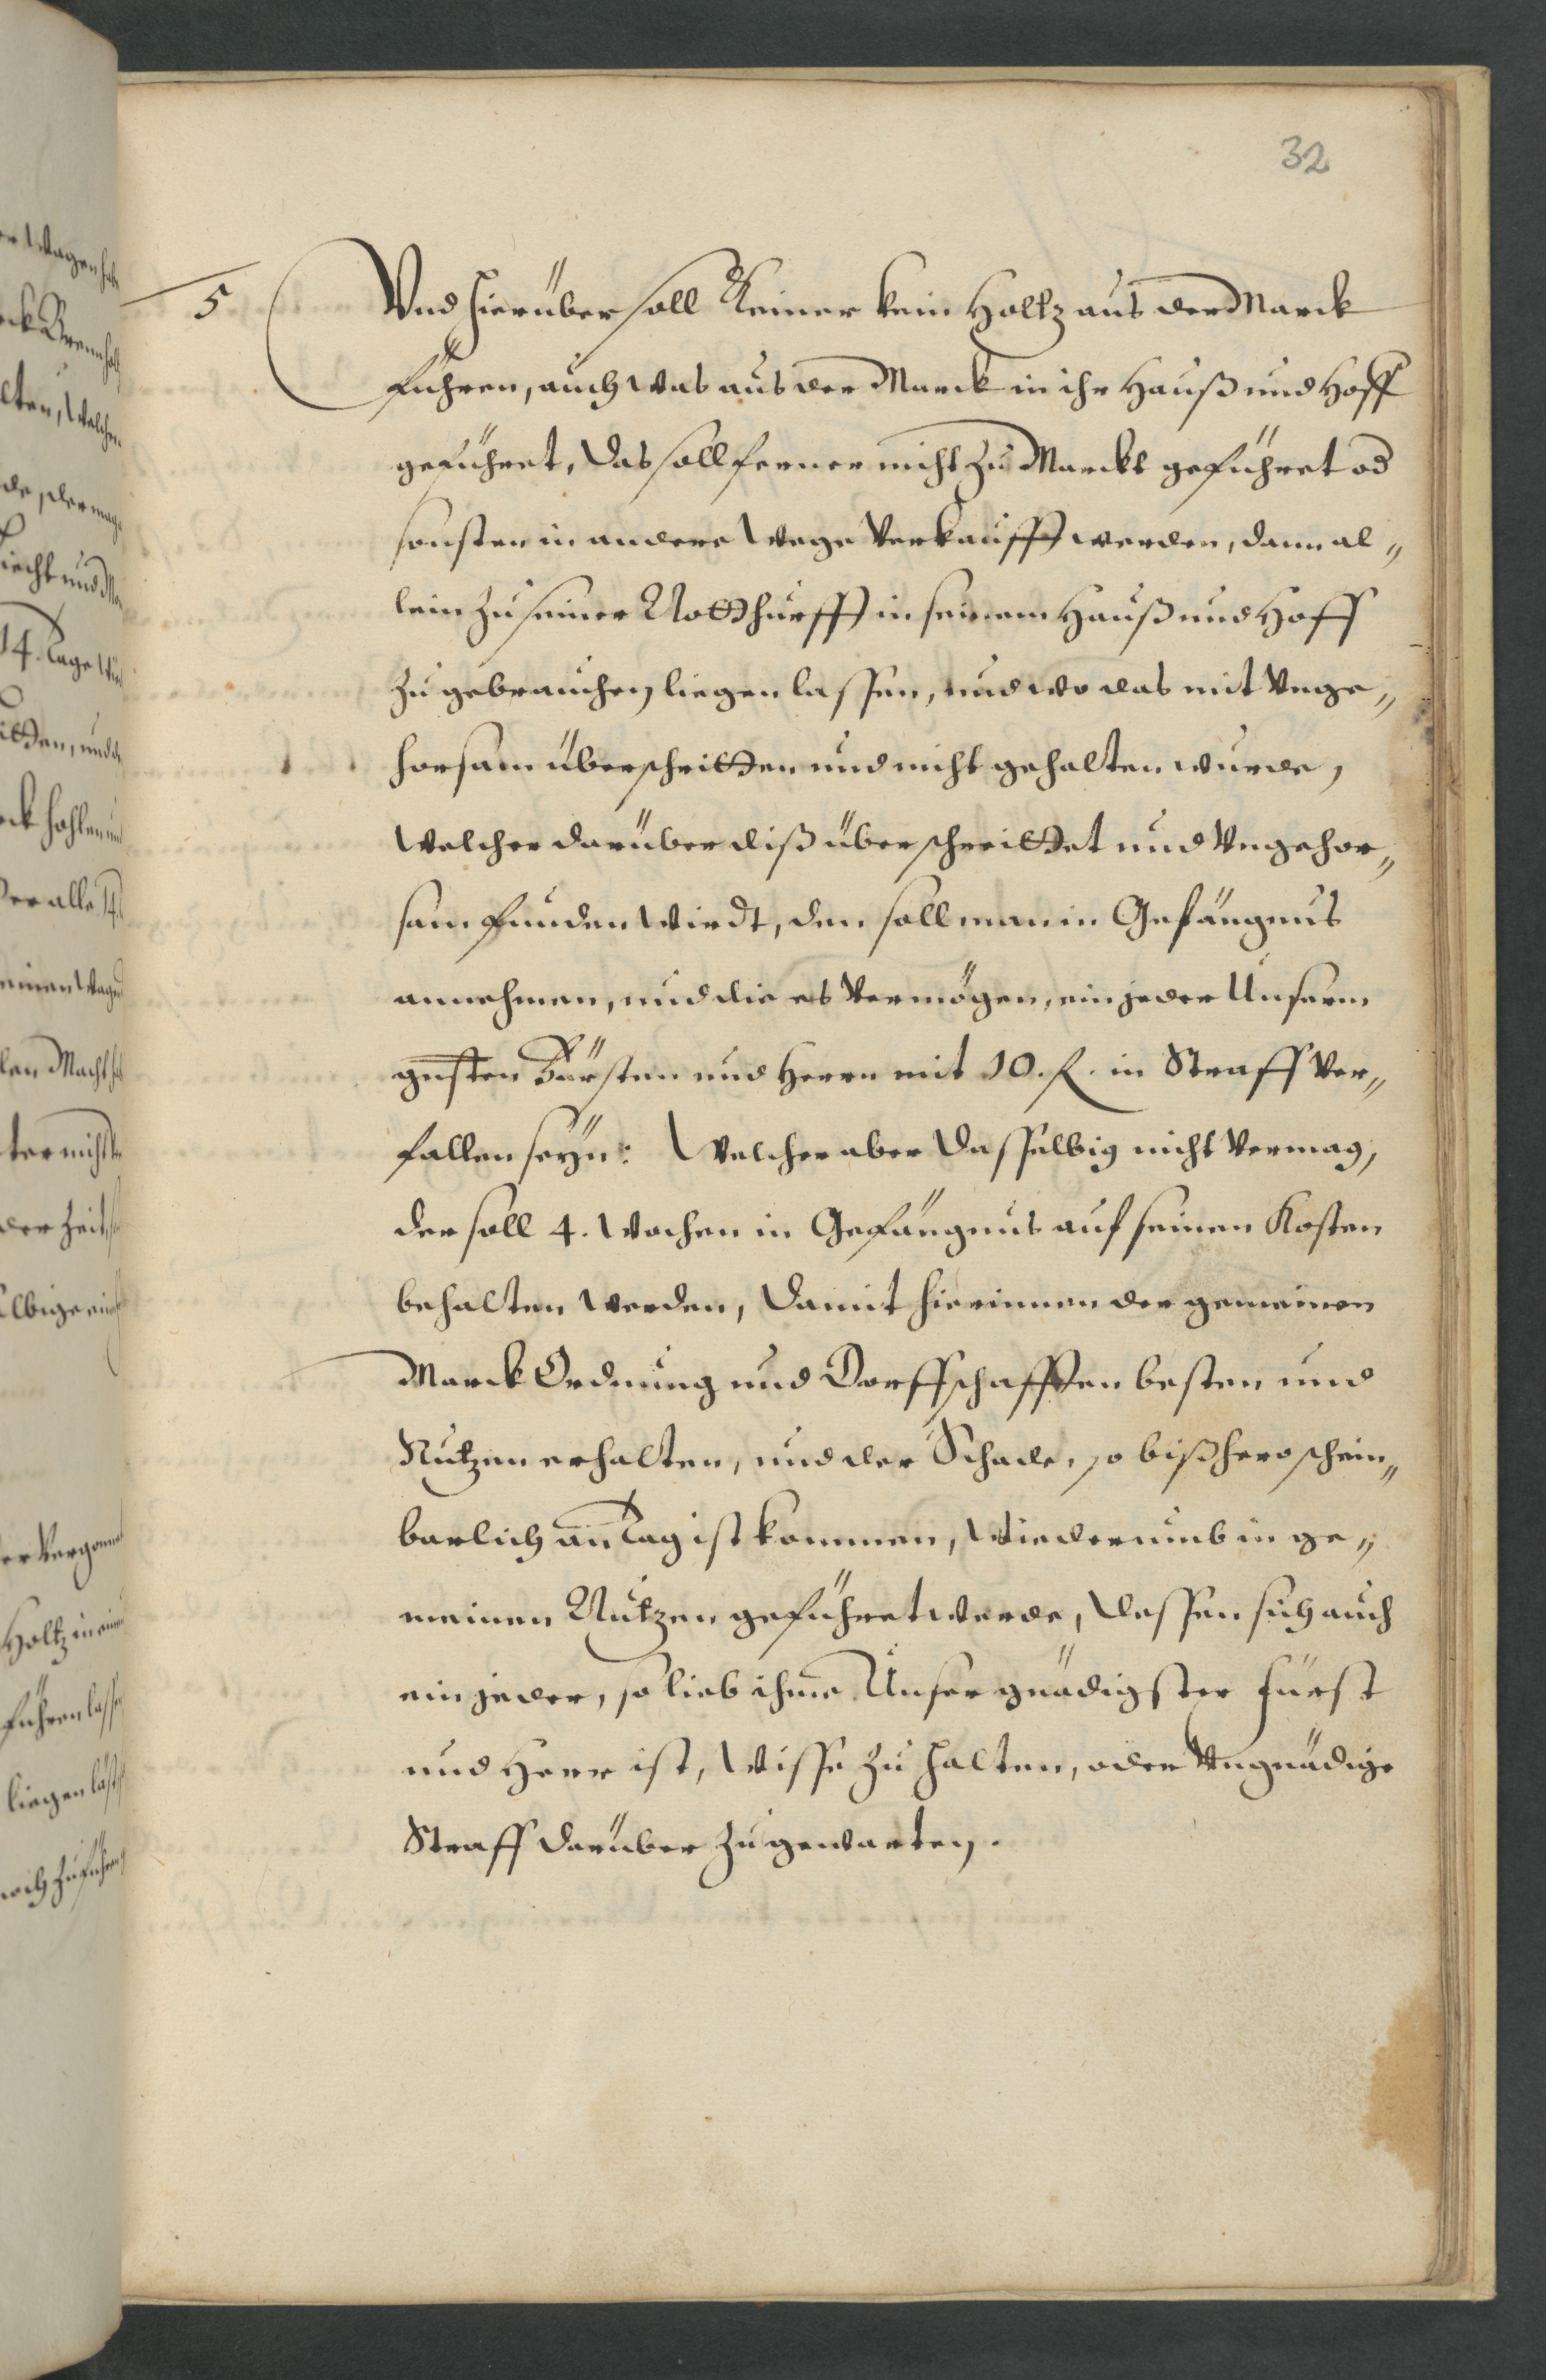 32
5
Vnd hierüber soll Keiner kein Holtz aus der Marck
führen, auch was aus der Marck in ihr Hauß und Hoff
geführet, das soll ferner nicht zu Marckt geführet od
sonsten in andere Wege Verkaufft werden, dann al„
lein zu seiner Notthurfft in seinem Hauß und Hoff
zu gebrauchen liegen lassen, und wo das mit Unge„
horsam überschritten und nicht gehalten wurde,
Welcher darüber diß überschreittet und Ungehor„
sam funden wirdt, den soll man in Gefängnus
annehmen, und die es Vermögen, ein jeder Unserm
gnsten Fürsten und Herrn mit 10. fl. in Straff Ver„
fallen seÿn: Welcher aber dasselbig nicht Vermag,
der soll 4. Wochen in Gefängnus auf seinen Kosten
behalten werden, damit hierinnen der gemeinen
Marck Ordnung und Dorffschafften besten und
Nutzen erhalten, und der Schade, so bißhero schein„
barlich an Tag ist kommen, Wiederumb in ge„
meinen Nutzen geführet werde, dessen sich auch
ein jeder, so lieb ihme Unser gnädigster Fürst
und Herr ist, Wisse zu halten, oder Ungnädige
Straff darüber zu gewarten.